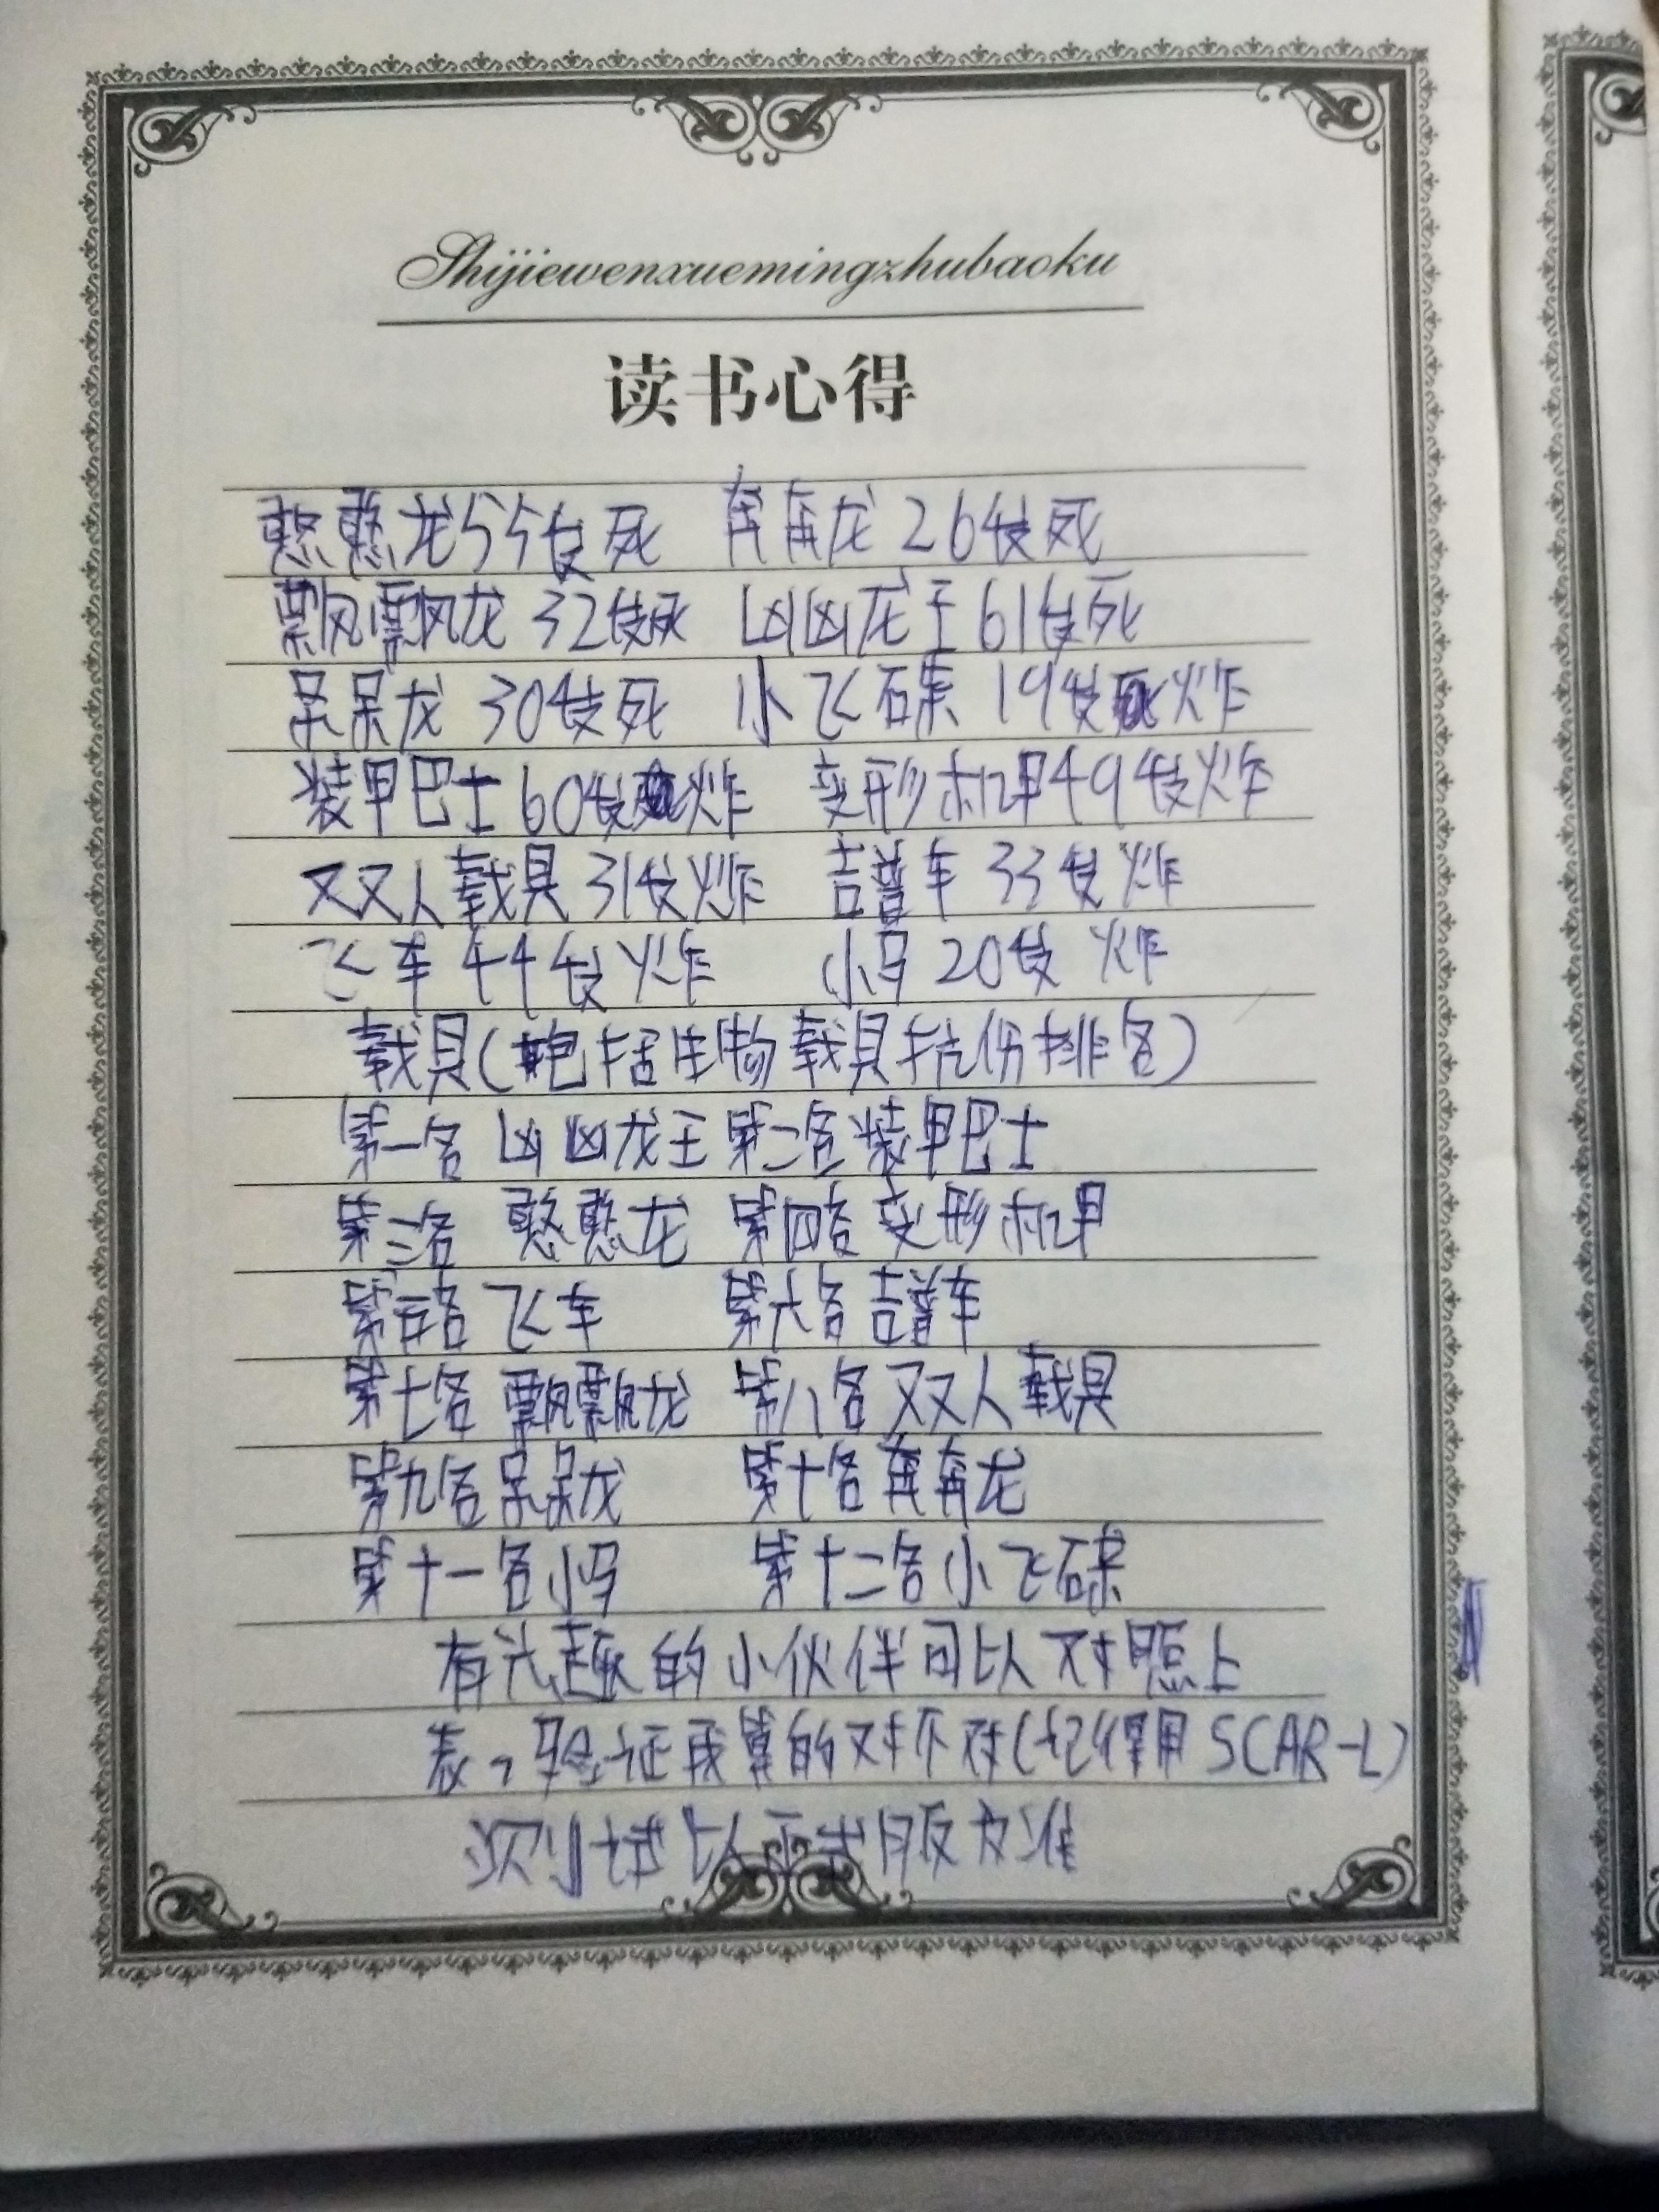 Shijiewenxuemingzhubaoku
读书心得
憨憨龙55发死 奔奔龙26发死
飘飘龙32发死 凶凶龙王61发死
呆呆龙30发死 小飞碟19发炸
装甲巴士60发炸 变形机甲49发炸
双双人载具31发炸 吉普车33发炸
飞车44发炸 小马20发炸
载具(包括生物载具抗伤排名)
第一名 凶凶龙王 第二名 装甲巴士
第三名 憨憨龙 第四名 变形机甲
第五名 飞车 第六名 吉普车
第七名 飘飘龙 第八名 双双人载具
第九名 呆呆龙 第十名 奔奔龙
第十一名 小马 第十二名 小飞碟
有兴趣的小伙伴可以对照上
表，验证我算的对不对(记得用SCAR-L)
测试以正式服为准